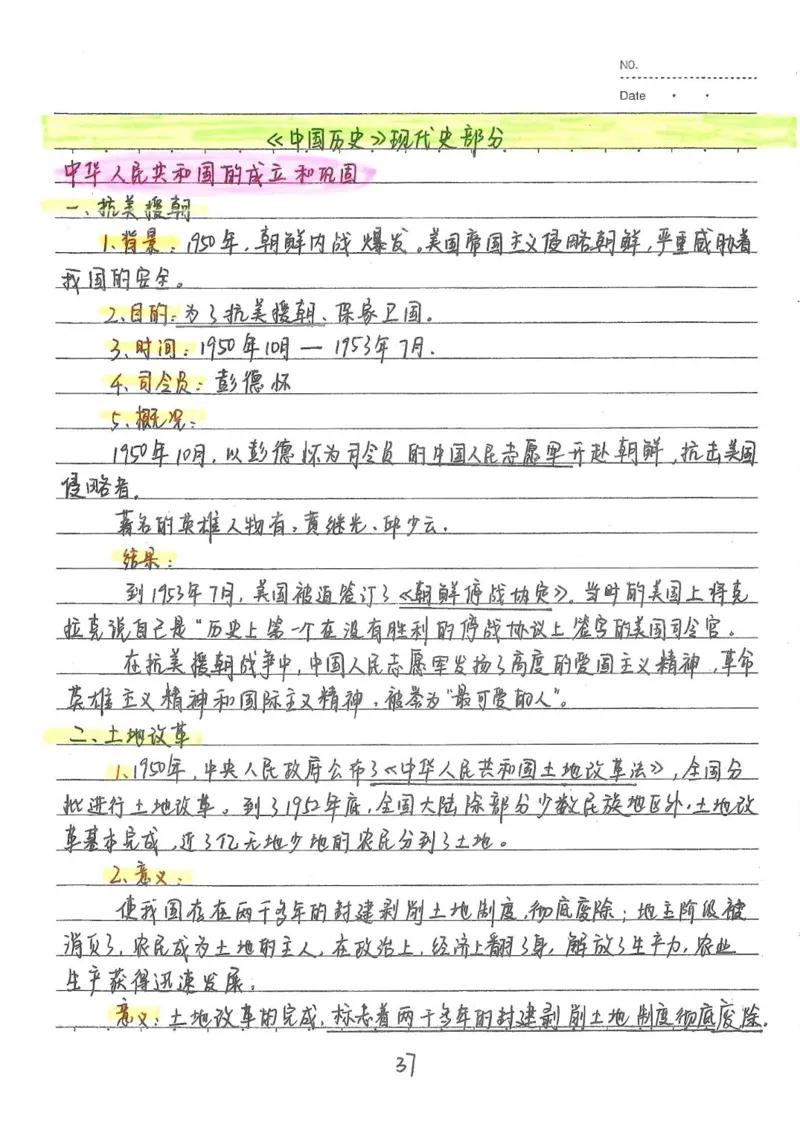 NO.
Date
《中国历史》现代史部分
中华人民共和国的成立和巩固
一、抗美援朝
1、背景：1950年，朝鲜内战爆发。美国帝国主义侵略朝鲜，严重威胁着
我国的安全。
2、目的：为了抗美援朝、保家卫国。
3、时间：1950年10月—1953年7月.
4、司令员：彭德怀
5、概况：
1950年10月，以彭德怀为司令员的中国人民志愿军开赴朝鲜，抗击美国
侵略者.
著名的英雄人物有，黄继光、邱少云.
结果：
到1953年7月，美国被迫签订了《朝鲜停战协定》。当时的美国上将克
拉克说自己是“历史上第一个在没有胜利的停战协议上签字的美国司令官。
在抗美援朝战争中，中国人民志愿军发扬了高度的爱国主义精神，革命
英雄主义精神和国际主义精神，被誉为“最可爱的人”。
二、土地改革
1、1950年，中央人民政府公布了《中华人民共和国土地改革法》，全国分
批进行土地改革。到了1952年底，全国大陆除部分少数民族地区外，土地改
革基本完成，近3亿无地少地的农民分到了土地。
2、意义：
使我国存在两千多年的封建剥削土地制度，彻底废除；地主阶级被
消灭了，农民成为土地的主人，在政治上，经济上翻了身，解放了生产力，农业
生产获得迅速发展。
意义：土地改革的完成，标志着两千多年的封建剥削土地制度彻底废除.
37